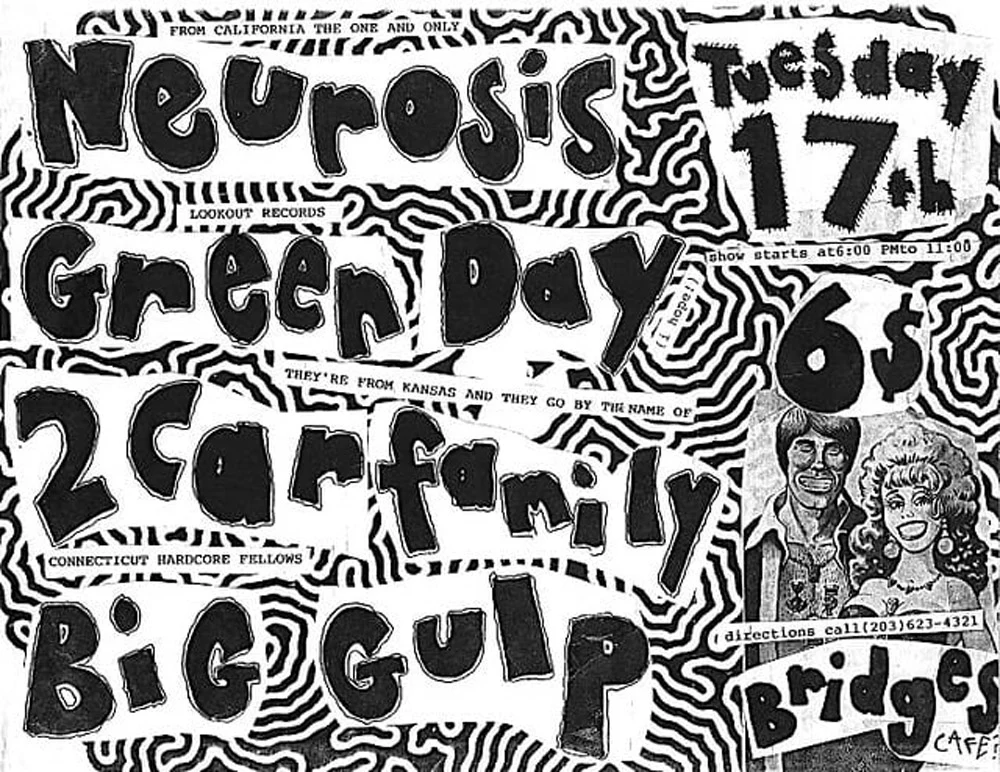 FROM CALIFORNIA THE ONE AND ONLY
Neurosis
LOOKOUT RECORDS
Green Day
(i hope!)
THEY'RE FROM KANSAS AND THEY GO BY THE NAME OF
2 Car family
CONNECTICUT HARDCORE FELLOWS
BiG Gulp
Tuesday
17th
show starts at6:00 PMto 11:00
6$
directions call(203)623-4321
Bridges
CAFE